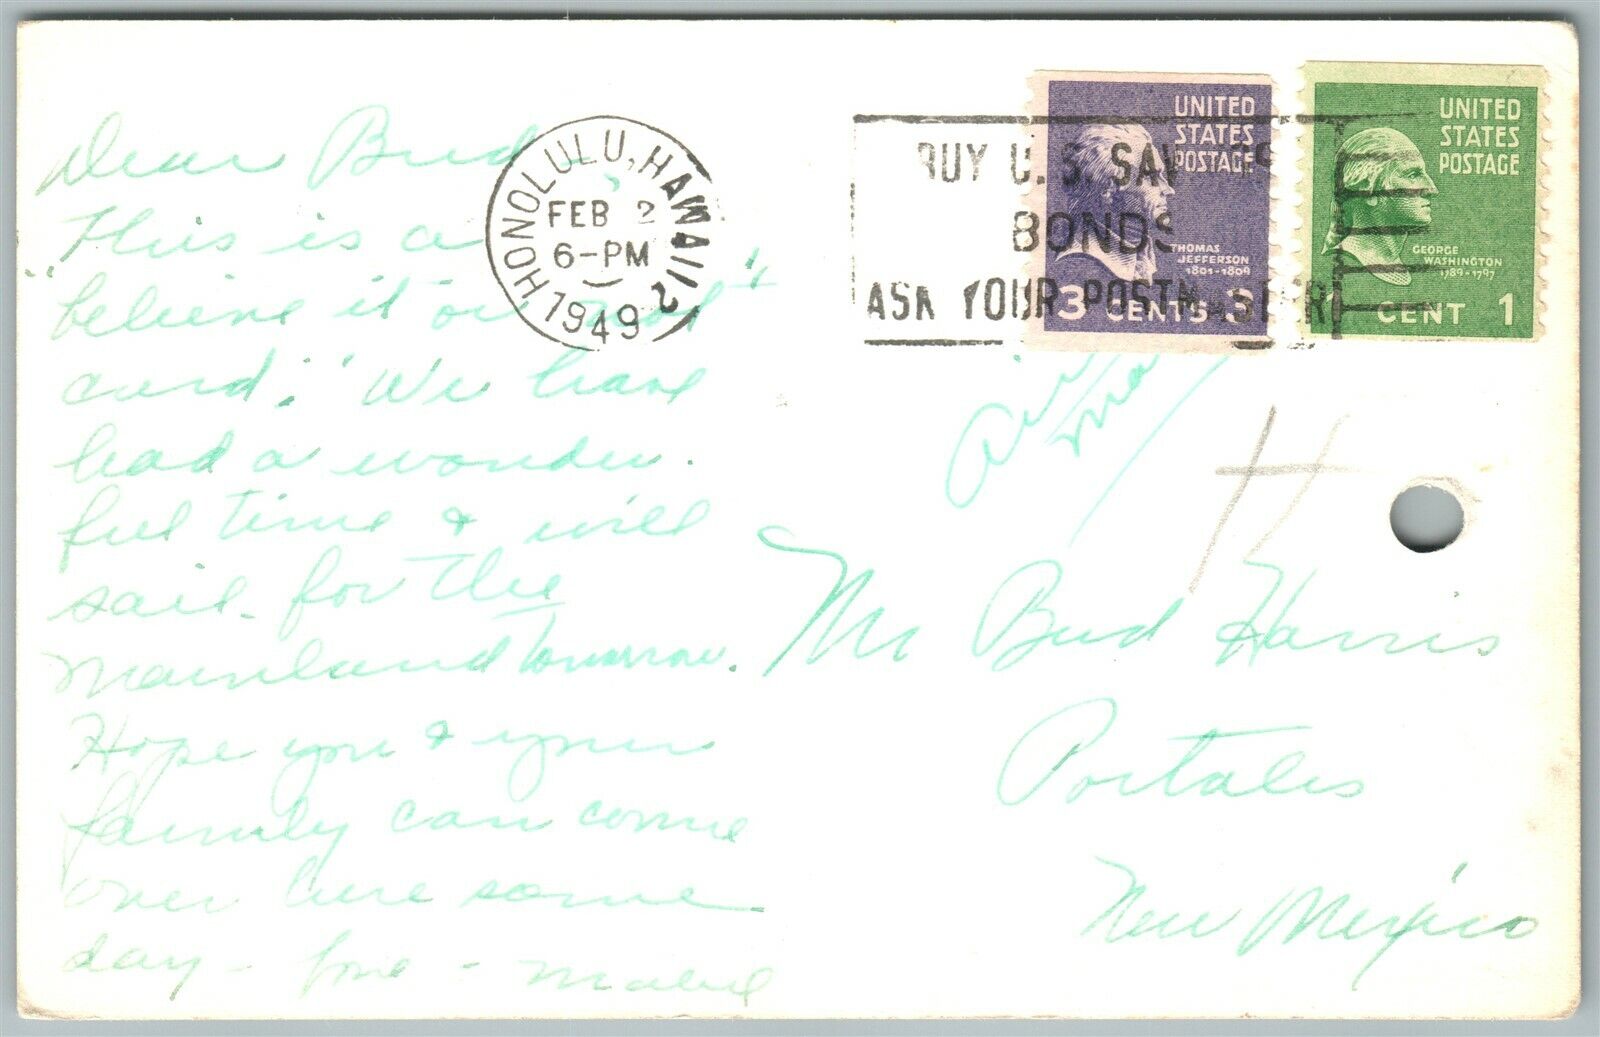 Dear Bud,
This is a
"believe it or not"
card. We have
had a wonder-
ful time & will
sail for the
mainland tomorrow.
Hope you & your
family can come
over here some
day - Love - Mabel
HONOLULU, HAWAII 2
FEB 2
6-PM
1949
BUY U. S. SAV GS
BONDS
ASK YOUR POSTMASTER
UNITED
STATES
POSTAGE
THOMAS
JEFFERSON
1801-1809
3 CENTS 3
UNITED
STATES
POSTAGE
GEORGE
WASHINGTON
1789-1797
CENT 1
Air
Mail
Mr Bud Harris
Portales
New Mexico